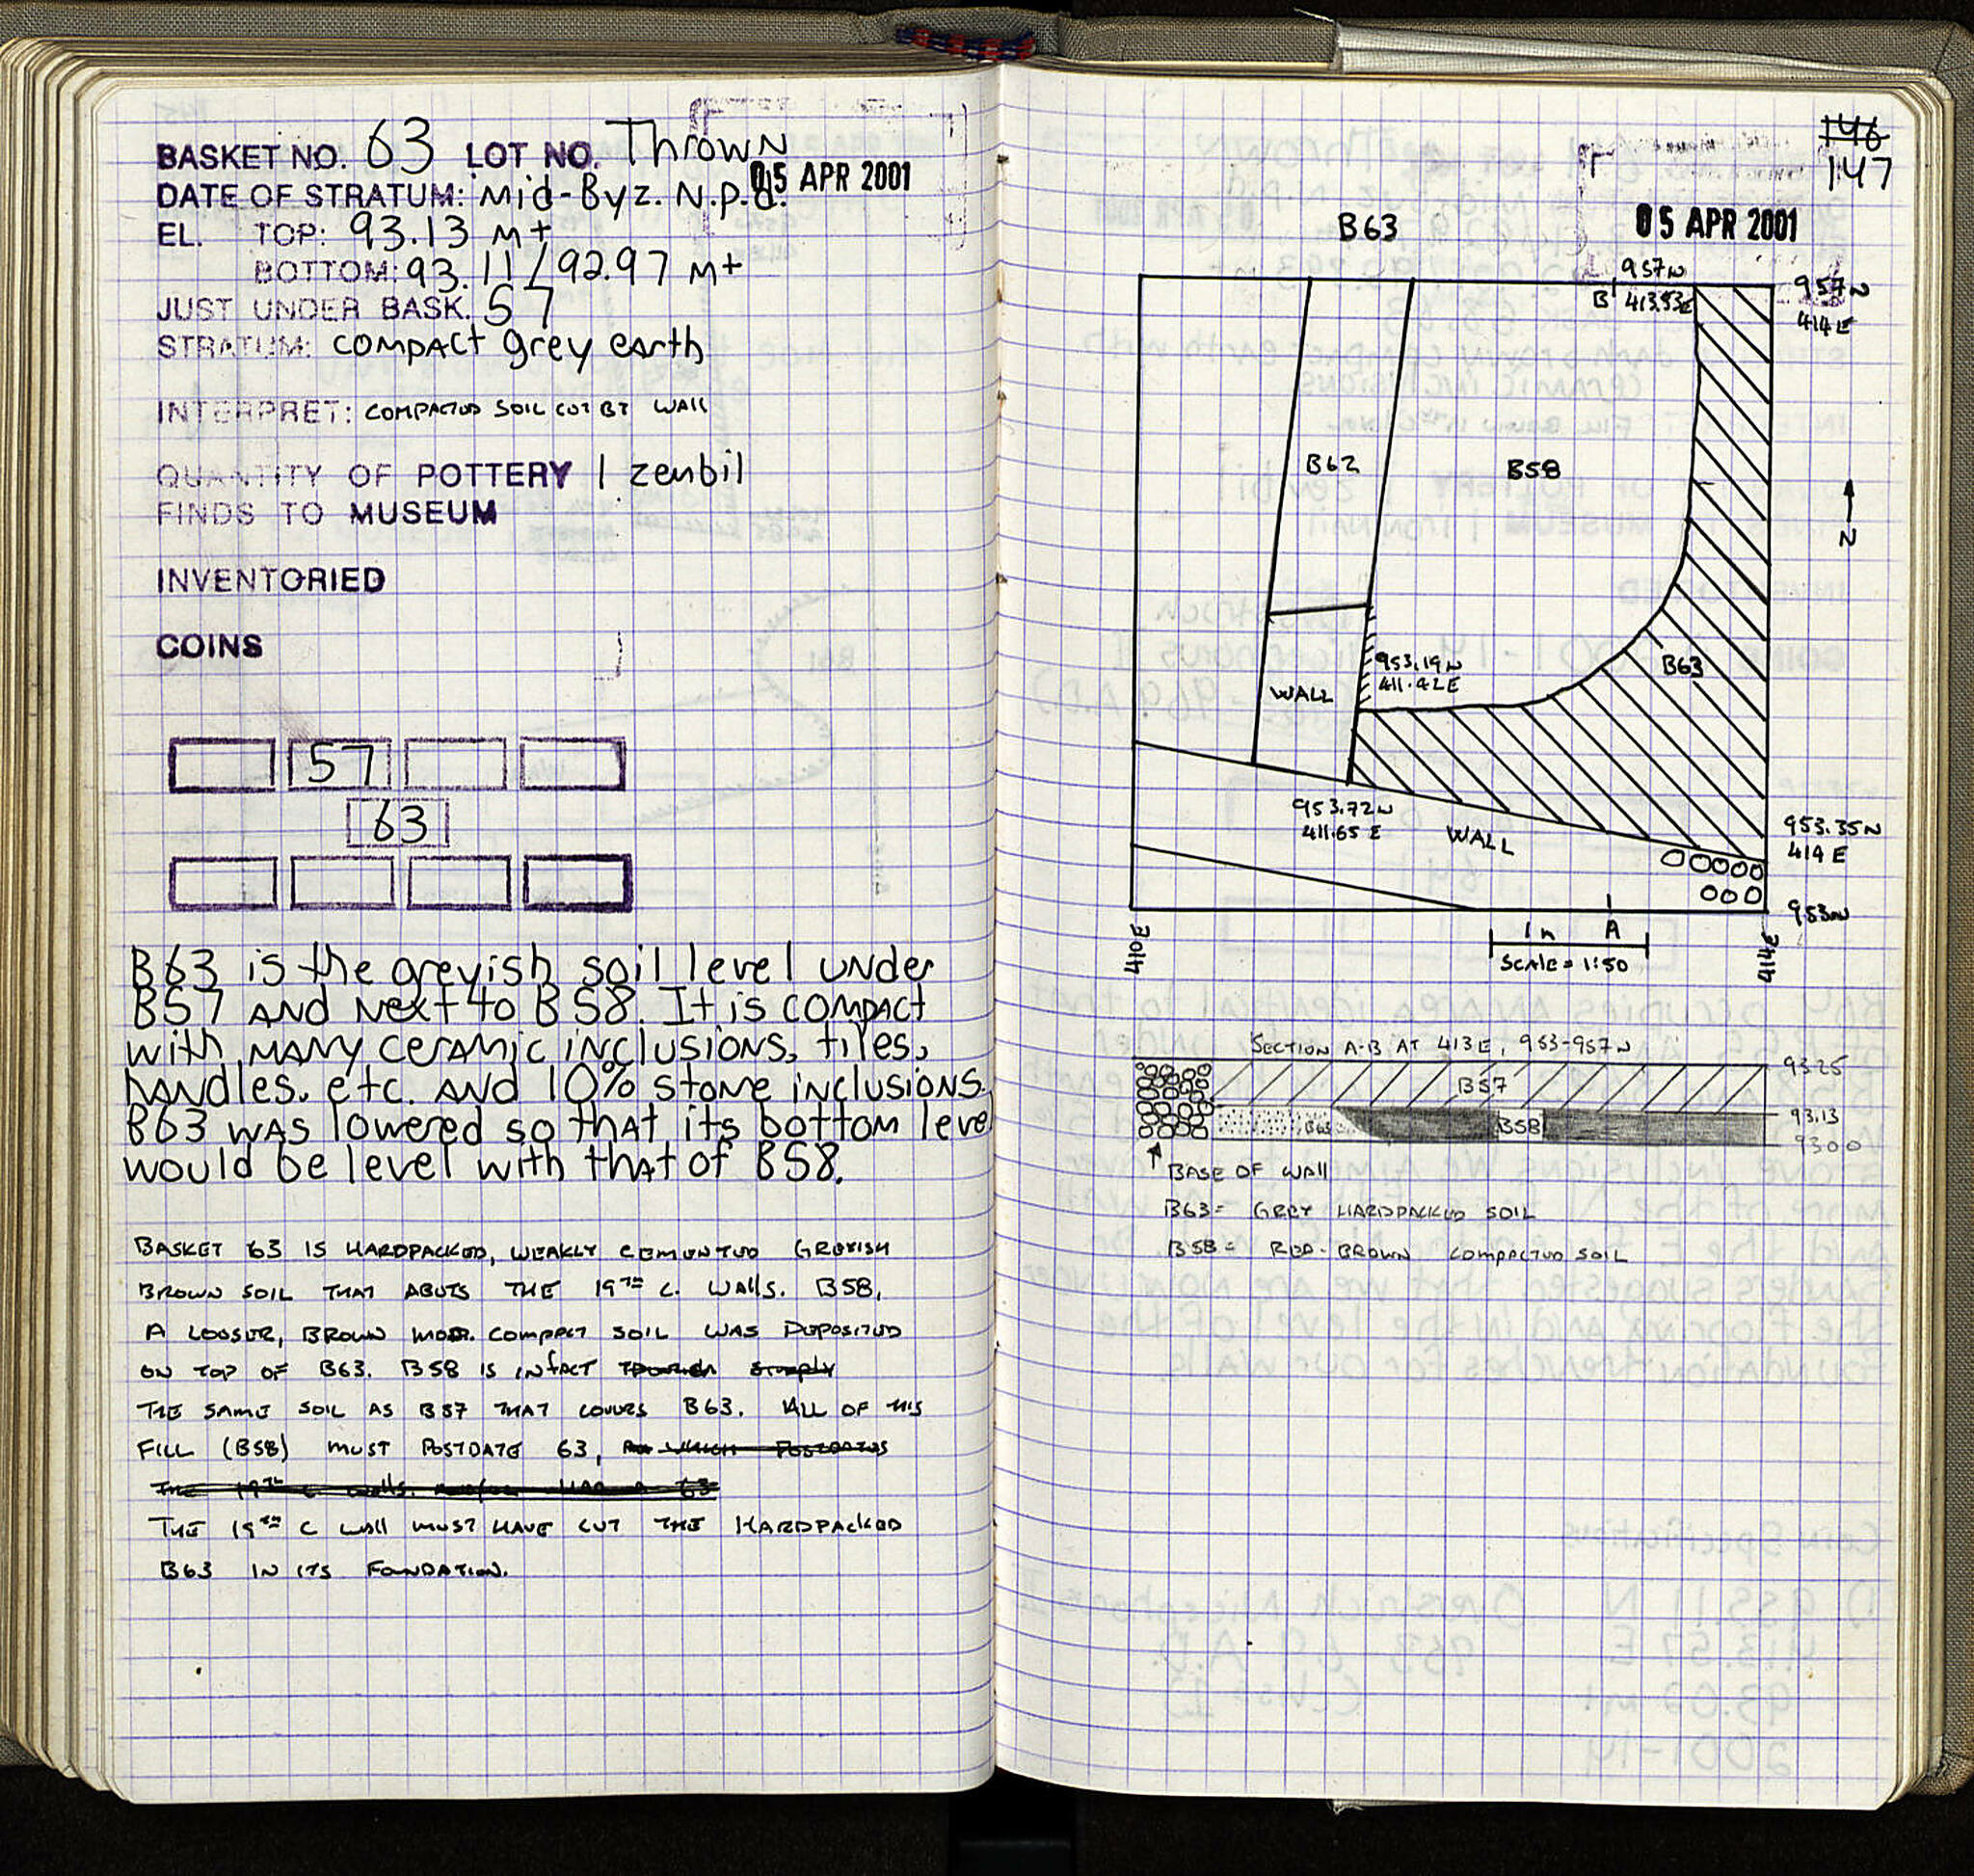 BASKET NO. 63 LOT NO. Thrown
05 APR 2001
DATE OF STRATUM: Mid-Byz. N.p.d.
EL. TOP: 93.13 M+
BOTTOM: 93.11/92.97 M+
JUST UNDER BASK. 57
STRATUM: compact grey earth
INTERPRET: COMPACTED SOIL CUT BY WALL
QUANTITY OF POTTERY 1 zembil
FINDS TO MUSEUM
INVENTORIED
COINS
57
63
B63 is the greyish soil level under
B57 AND Next to B58. It is compact
with MANY ceramic inclusions, tiles,
handles. etc. AND 10% stone inclusions.
B63 was lowered so that its bottom level
would be level with that of B58.
BASKET 63 IS HARDPACKED, WEAKLY CEMENTED GREYISH
BROWN SOIL THAT ABUTS THE 19TH C. WALLS. B58,
A LOOSER, BROWN MOD. COMPACT SOIL WAS DEPOSITED
ON TOP OF B63. B58 IS IN FACT SIMPLY
THE SAME SOIL AS B57 THAT COVERS B63. ALL OF THIS
FILL (B58) MUST POSTDATE 63, WHICH POSTDATES
THE 19TH C WALLS. 63
THE 19TH C WALL MUST HAVE CUT THE HARDPACKED
B63 IN ITS FOUNDATION.
146
147
B63
05 APR 2001
957N
B 413.53E
957N
414E
B62
B58
N
953.19N
411.42E
B63
WALL
953.72N
411.65E
WALL
953.35N
414E
953N
410E
1m
A
414E
SCALE = 1:50
SECTION A-B AT 413E, 953-957N
93.25
B57
93.13
B63
B58
93.00
BASE OF WALL
B63 = GREY HARDPACKED SOIL
B58 = RED-BROWN COMPACTED SOIL